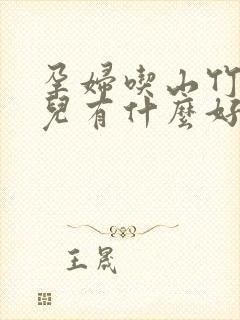 孕婦喫山竹
兒有什麼好
王晟